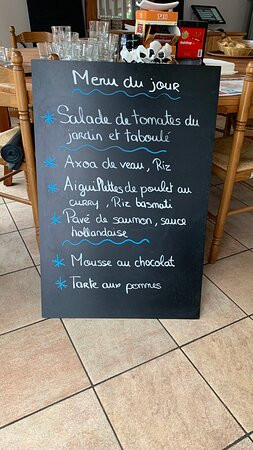 Menu du jour
Salade de tomates du
jardin et taboulé
Axoa de veau, Riz
Aiguillettes de poulet au
curry, Riz basmati
Pavé de saumon, sauce
hollandaise
Mousse au chocolat
Tarte aux pommes